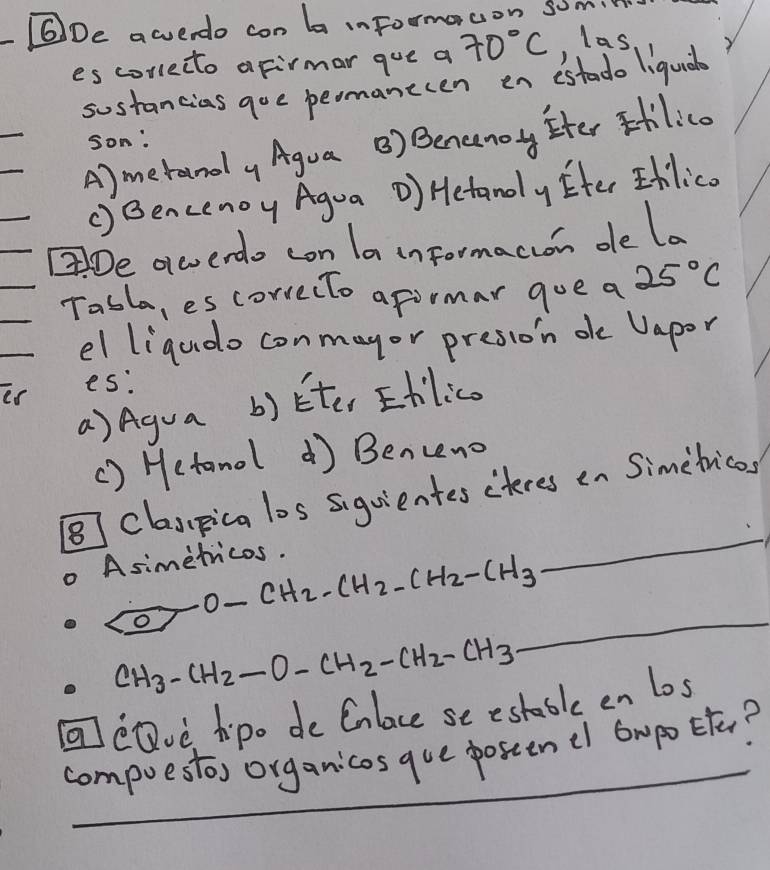 - 6 De acuerdo con la informacion sumi
es correcto afirmar que a 70°C, las
sustancias que permanecen en éstado líquido
son:
A) metanol y Agua B) Benceno y Éter Etílico
C) Benceno y Agua D) Metanol y Éter Etílico
7. De acuerdo con la información de la
Tabla, es correcto afirmar que a 25°C
el líquido con mayor presión de Vapor
es:
a) Agua b) Éter Etílico
c) Metanol d) Benceno
8 Clasifica los siguientes éteres en Simétricos
o Asimétricos.
• O - CH2 - CH2 - CH2 - CH3
• CH3 - CH2 - O - CH2 - CH2 - CH3
9 ¿Qué tipo de Enlace se estable en los
compuestos organicos que poseen el Grupo Eter?